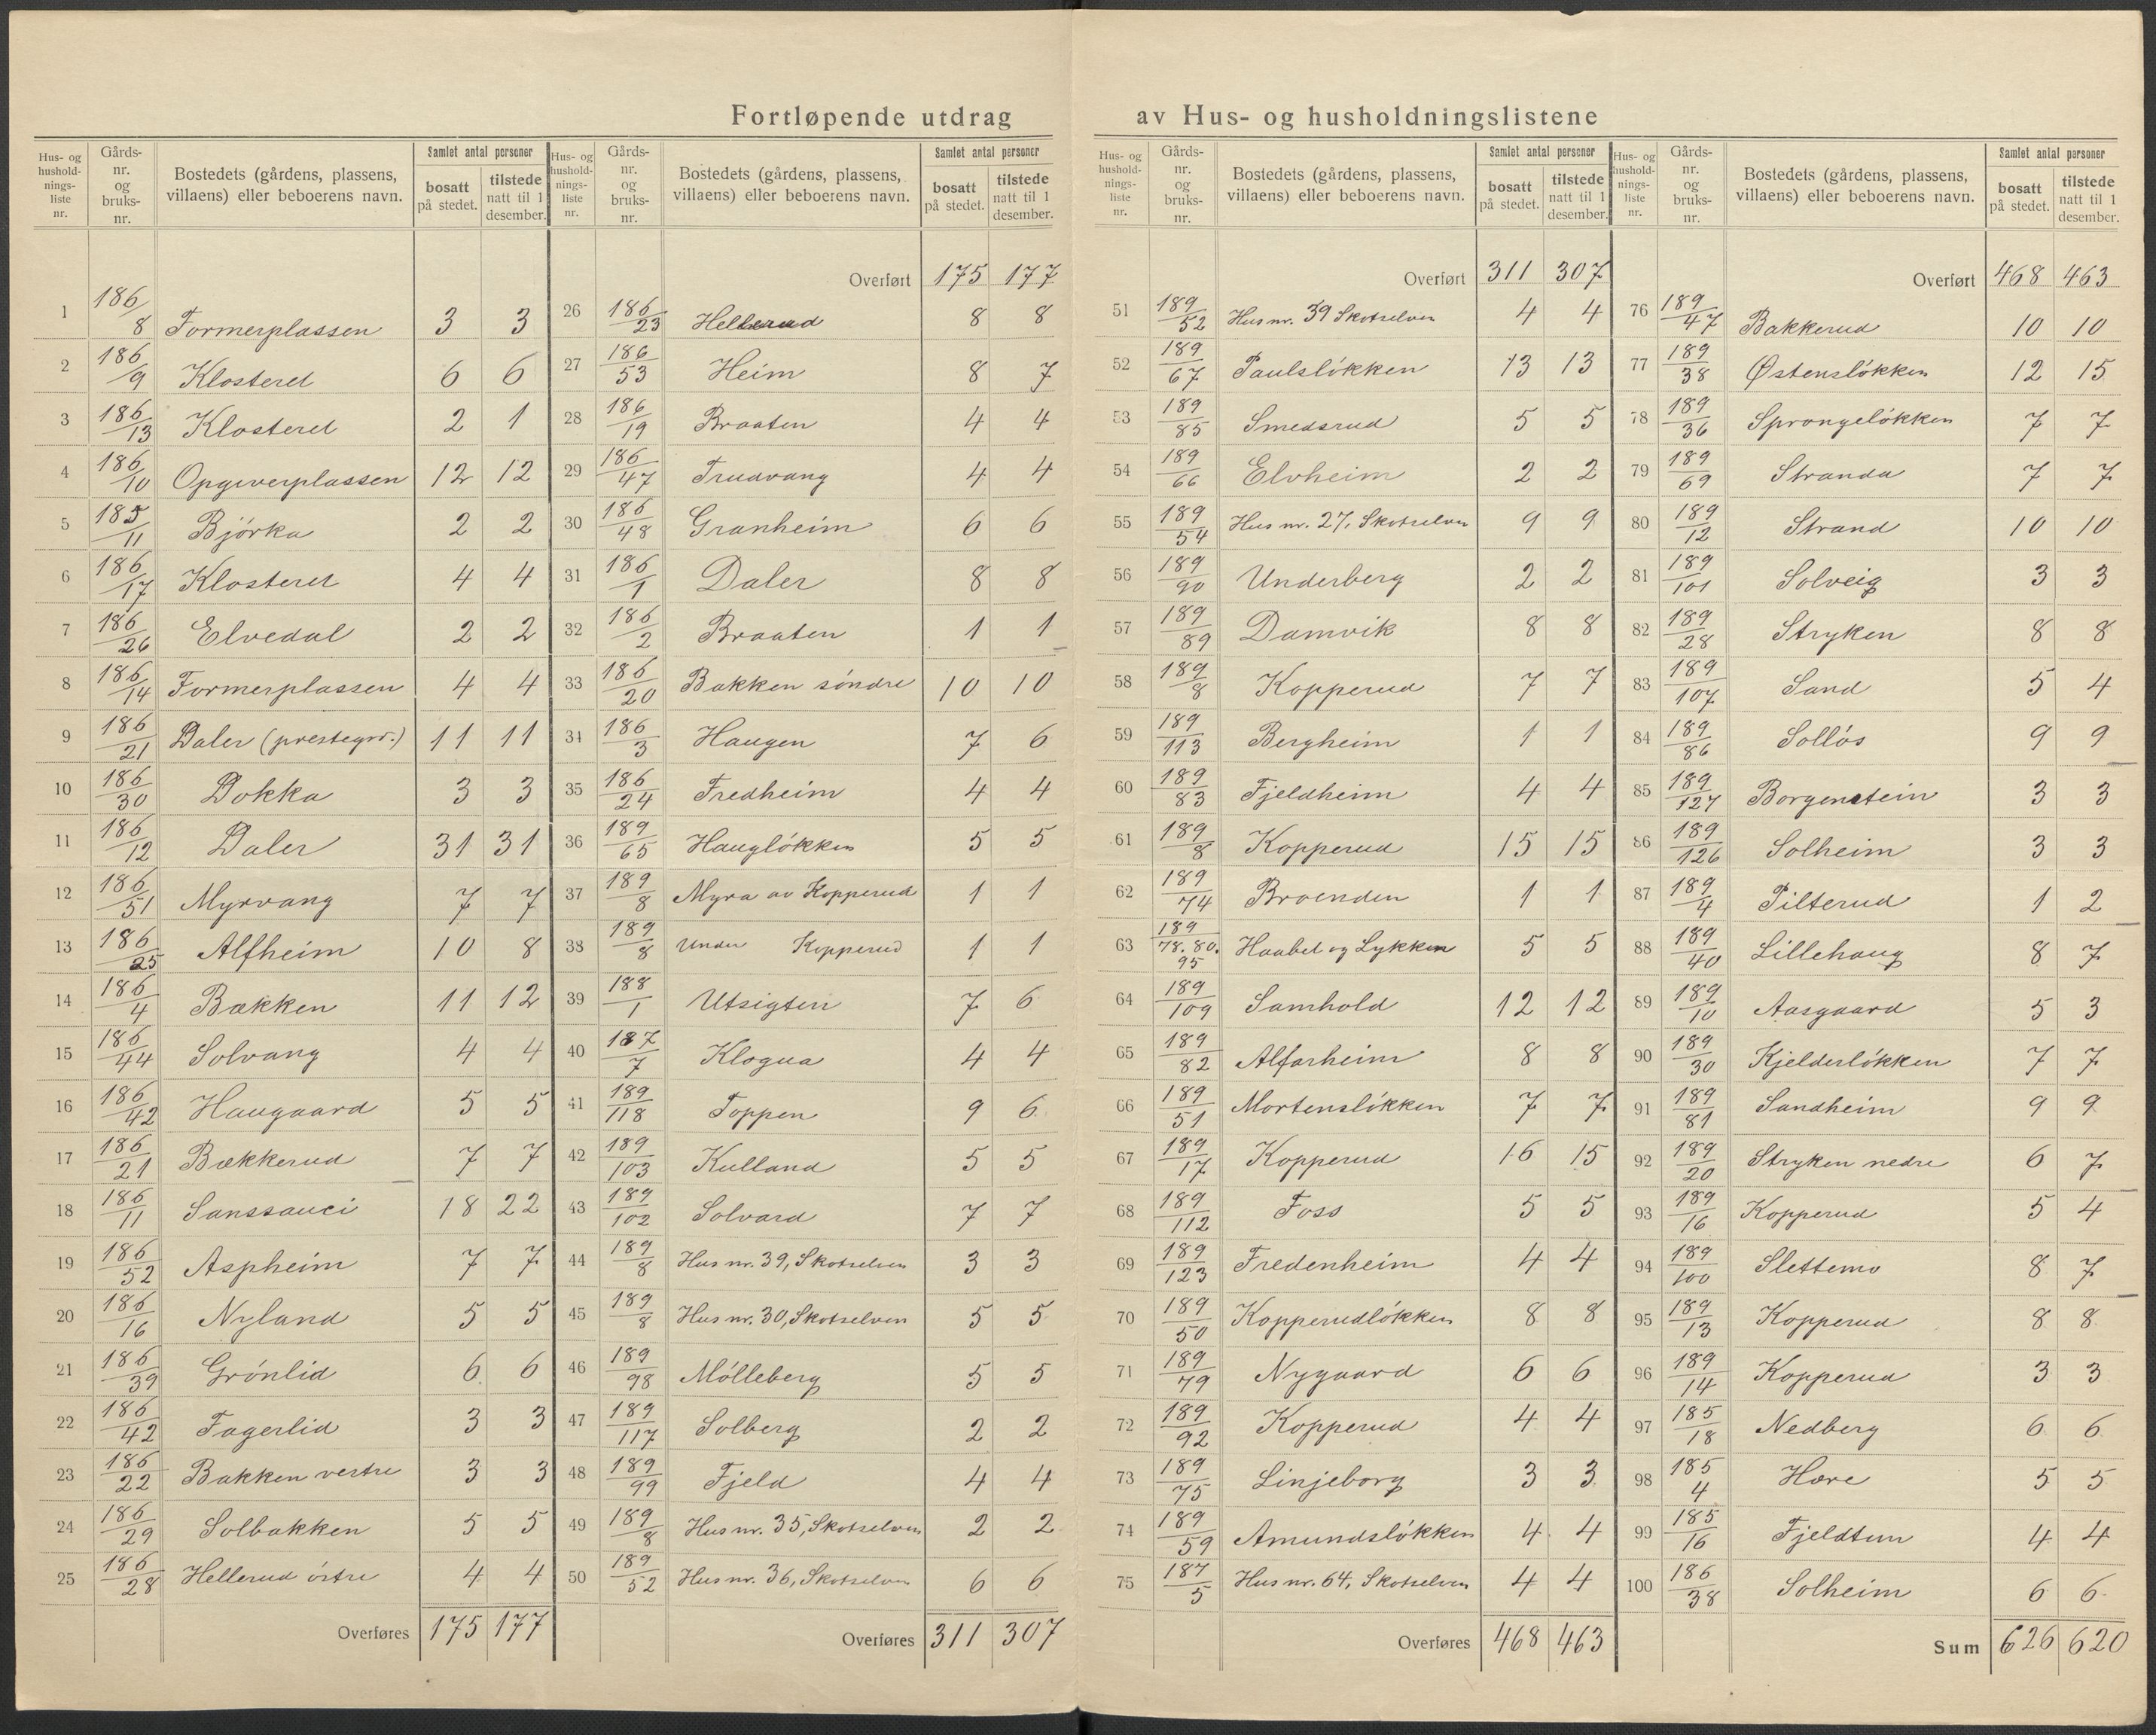 Fortløpende utdrag av Hus- og husholdningslistene
Hus- og husholdnings-liste nr. | Gårds-nr. og bruks-nr. | Bostedets (gårdens, plassens, villaens) eller beboerens navn. | Samlet antal personer bosatt på stedet. | tilstede natt til 1 desember.
1 186/8 Formerplassen 3 3
2 186/9 Klosteret 6 6
3 186/13 Klosteret 2 1
4 186/10 Opgiverplassen 12 12
5 185/11 Bjórka 2 2
6 186/17 Klosteret 4 4
7 186/26 Elvedal 2 2
8 186/14 Formerplassen 4 4
9 186/21 Daler (prestegrd.) 11 11
10 186/30 Dokka 3 3
11 186/12 Daler 31 31
12 186/51 Myrvang 7 7
13 186/25 Alfheim 10 8
14 186/4 Bækken 11 12
15 186/44 Solvang 4 4
16 186/42 Haugaard 5 5
17 186/21 Bækkerud 7 7
18 186/11 Sanssauci 18 22
19 186/52 Aspheim 7 7
20 186/16 Nyland 5 5
21 186/39 Grónlid 6 6
22 186/42 Fagerlid 3 3
23 186/22 Bakken vestre 3 3
24 186/29 Solbakken 5 5
25 186/28 Hellerud óstre 4 4
Overføres 175 177
Hus- og husholdnings-liste nr. | Gårds-nr. og bruks-nr. | Bostedets (gårdens, plassens, villaens) eller beboerens navn. | Samlet antal personer bosatt på stedet. | tilstede natt til 1 desember.
Overført 175 177
26 186/23 Hellerud 8 8
27 186/53 Heim 8 7
28 186/19 Braaten 4 4
29 186/47 Trudvang 4 4
30 186/48 Granheim 6 6
31 186/1 Daler 8 8
32 186/2 Braaten 1 1
33 186/20 Bakken sóndre 10 10
34 186/3 Haugen 7 6
35 186/24 Fredheim 4 4
36 189/65 Haugløkken 5 5
37 189/8 Myra av Kopperud 1 1
38 189/8 Under Kopperud 1 1
39 188/1 Utsigten 7 6
40 187/7 Klogua 4 4
41 189/118 Toppen 9 6
42 189/103 Kulland 5 5
43 189/102 Solvard 7 7
44 189/8 Hus nr. 39, Skotselven 3 3
45 189/8 Hus nr. 30, Skotselven 5 5
46 189/98 Mólleberg 5 5
47 189/117 Solberg 2 2
48 189/99 Fjeld 4 4
49 189/8 Hus nr. 35, Skotselven 2 2
50 189/52 Hus nr. 36, Skotselven 6 6
Overføres 311 307
Hus- og husholdnings-liste nr. | Gårds-nr. og bruks-nr. | Bostedets (gårdens, plassens, villaens) eller beboerens navn. | Samlet antal personer bosatt på stedet. | tilstede natt til 1 desember.
Overført 311 307
51 189/52 Hus nr. 39 Skotselven 4 4
52 189/67 Paulslókken 13 13
53 189/85 Smedsrud 5 5
54 189/66 Elvheim 2 2
55 189/54 Hus nr. 27, Skotselven 9 9
56 189/90 Underberg 2 2
57 189/89 Damvik 8 8
58 189/8 Kopperud 7 7
59 189/113 Bergheim 1 1
60 189/83 Fjeldheim 4 4
61 189/8 Kopperud 15 15
62 189/74 Broenden 1 1
63 189/78. 80. 95 Haabet og Lykken 5 5
64 189/109 Samhold 12 12
65 189/82 Alfarheim 8 8
66 189/51 Mortenslókken 7 7
67 189/17 Kopperud 16 15
68 189/112 Foss 5 5
69 189/123 Fredenheim 4 4
70 189/50 Kopperudlókken 8 8
71 189/79 Nygaard 6 6
72 189/92 Kopperud 4 4
73 189/75 Linjeborg 3 3
74 189/59 Amundslókken 4 4
75 187/5 Hus nr. 64, Skotselven 4 4
Overføres 468 463
Hus- og husholdnings-liste nr. | Gårds-nr. og bruks-nr. | Bostedets (gårdens, plassens, villaens) eller beboerens navn. | Samlet antal personer bosatt på stedet. | tilstede natt til 1 desember.
Overført 468 463
76 189/47 Bakkerud 10 10
77 189/38 Østenslókken 12 15
78 189/36 Sprongelókken 7 7
79 189/69 Stranda 7 7
80 189/12 Strand 10 10
81 189/101 Solveig 3 3
82 189/28 Stryken 8 8
83 189/107 Sand 5 4
84 189/86 Sollós 9 9
85 189/127 Borgenstein 3 3
86 189/126 Solheim 3 3
87 189/4 Pilterud 1 2
88 189/40 Lillehaug 8 7
89 189/10 Aasgaard 5 3
90 189/30 Kjelderlókken 7 7
91 189/81 Sandheim 9 9
92 189/20 Stryken nedre 6 7
93 189/16 Kopperud 5 4
94 189/100 Slettemo 8 7
95 189/13 Kopperud 8 8
96 189/14 Kopperud 3 3
97 185/18 Nedberg 6 6
98 185/4 Hære 5 5
99 185/16 Fjeldtun 4 4
100 186/38 Solheim 6 6
Sum 626 620